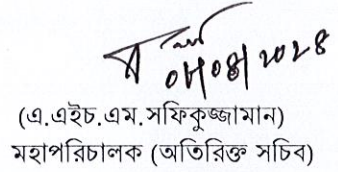 ০৮/০৪/২০২৪
(এ.এইচ.এম.সফিকুজ্জামান)
মহাপরিচালক (অতিরিক্ত সচিব)